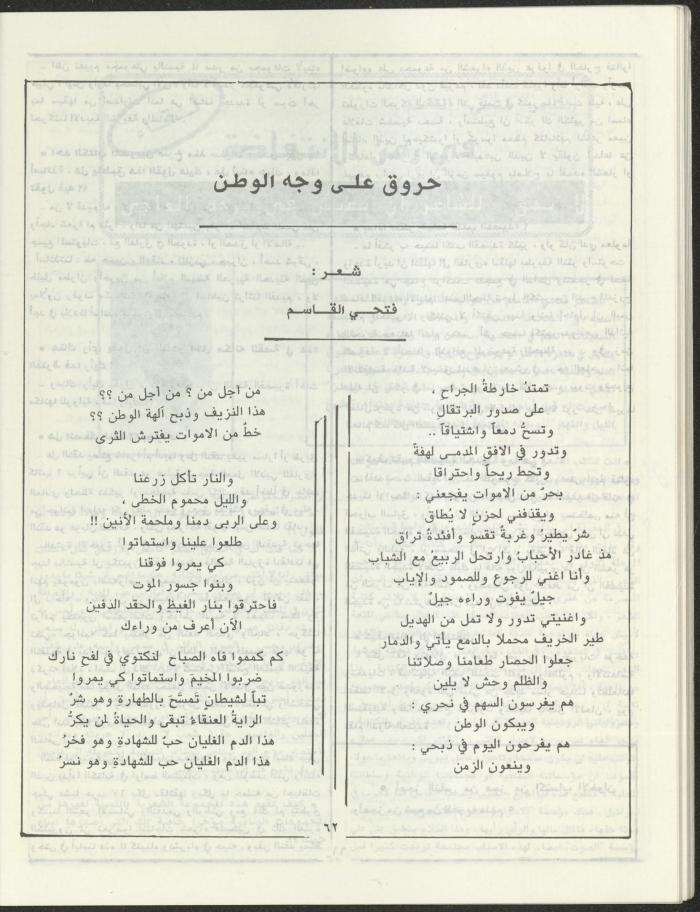 حروق على وجه الوطن
شعر :
فتحي القاسم
تمتدُ خارطةُ الجراحِ ،
على صدور البرتقال
وتسحُّ دمعاً واشتياقاً ..
وتدور في الافق المدمى لهفةً
وتحط ريحاً واحتراقا
بحرٌ من الاموات يفجعني :
ويقذفني لحزنٍ لا يُطاق
شرٌ يطيرُ وغربةٌ تقسو وأفئدةٌ تراق
مذ غادرَ الأحبابُ وارتحل الربيعُ مع الشباب
وأنا اغني للرجوع وللصمود والإياب
جيلٌ يفوت وراءه جيلٌ
واغنيتي تدور ولا تمل من الهديل
طير الخريف محملا بالدمع يأتي والدمار
جعلوا الحصار طعامنا وصلاتنا
والظلم وحش لا يلين
هم يغرسون السهم في نحري :
ويبكون الوطن
هم يفرحون اليوم في ذبحي :
وينعون الزمن
من أجل من ؟ من أجل من ؟؟
هذا النزيف وذبح آلهة الوطن ؟؟
خطٌ من الاموات يفترش الثرى
والنار تأكل زرعنا
والليل محموم الخطى ،
وعلى الربى دمنا وملحمة الأنين !!
طلعوا علينا واستماتوا
كي يمروا فوقنا
وبنوا جسور الموت
فاحترقوا بنار الغيظِ والحقد الدفين
الآن أعرف من وراءك
كم كمموا فاه الصباح لنكتوي في لفح نارك
ضربوا المخيمَ واستماتوا كي يمروا
تباً لشيطانٍ تَمسَّحَ بالطهارةِ وهو شرٌ
الرايةُ العنقاءُ تبقى والحياةُ لمن يكرُّ
هذا الدم الغليان حبٌ للشهادةِ وهو فخرُ
هذا الدم الغليان حب للشهادة وهو نسرُ
٦٢